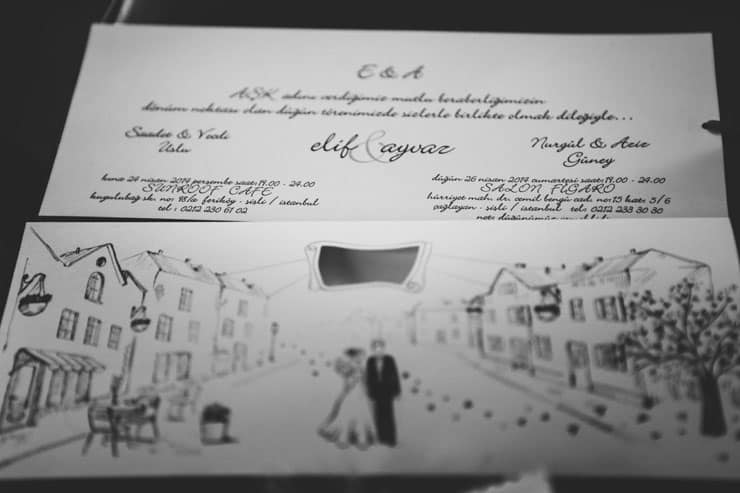 E & A
AŞK adını verdiğimiz mutlu beraberliğimizin
dönüm noktası olan düğün törenimizde sizlerle birlikte olmak dileğiyle...
Saadet & Vedi
Uslu
elif & ayvaz
Nurgül & Aziz
Güney
kına: 24 nisan 2014 perşembe saat: 19.00 - 24.00
SUNROOF CAFE
kuyulubağ sk. no: 18/a feriköy - şişli / istanbul
tel : 0212 230 61 02
düğün: 26 nisan 2014 cumartesi saat: 19.00 - 24.00
SALON FİGARO
hürriyet mah. dr. cemil bengü cad. no: 15 kat: 5/6
çağlayan - şişli / istanbul tel: 0212 233 30 30
not: düğünümüz